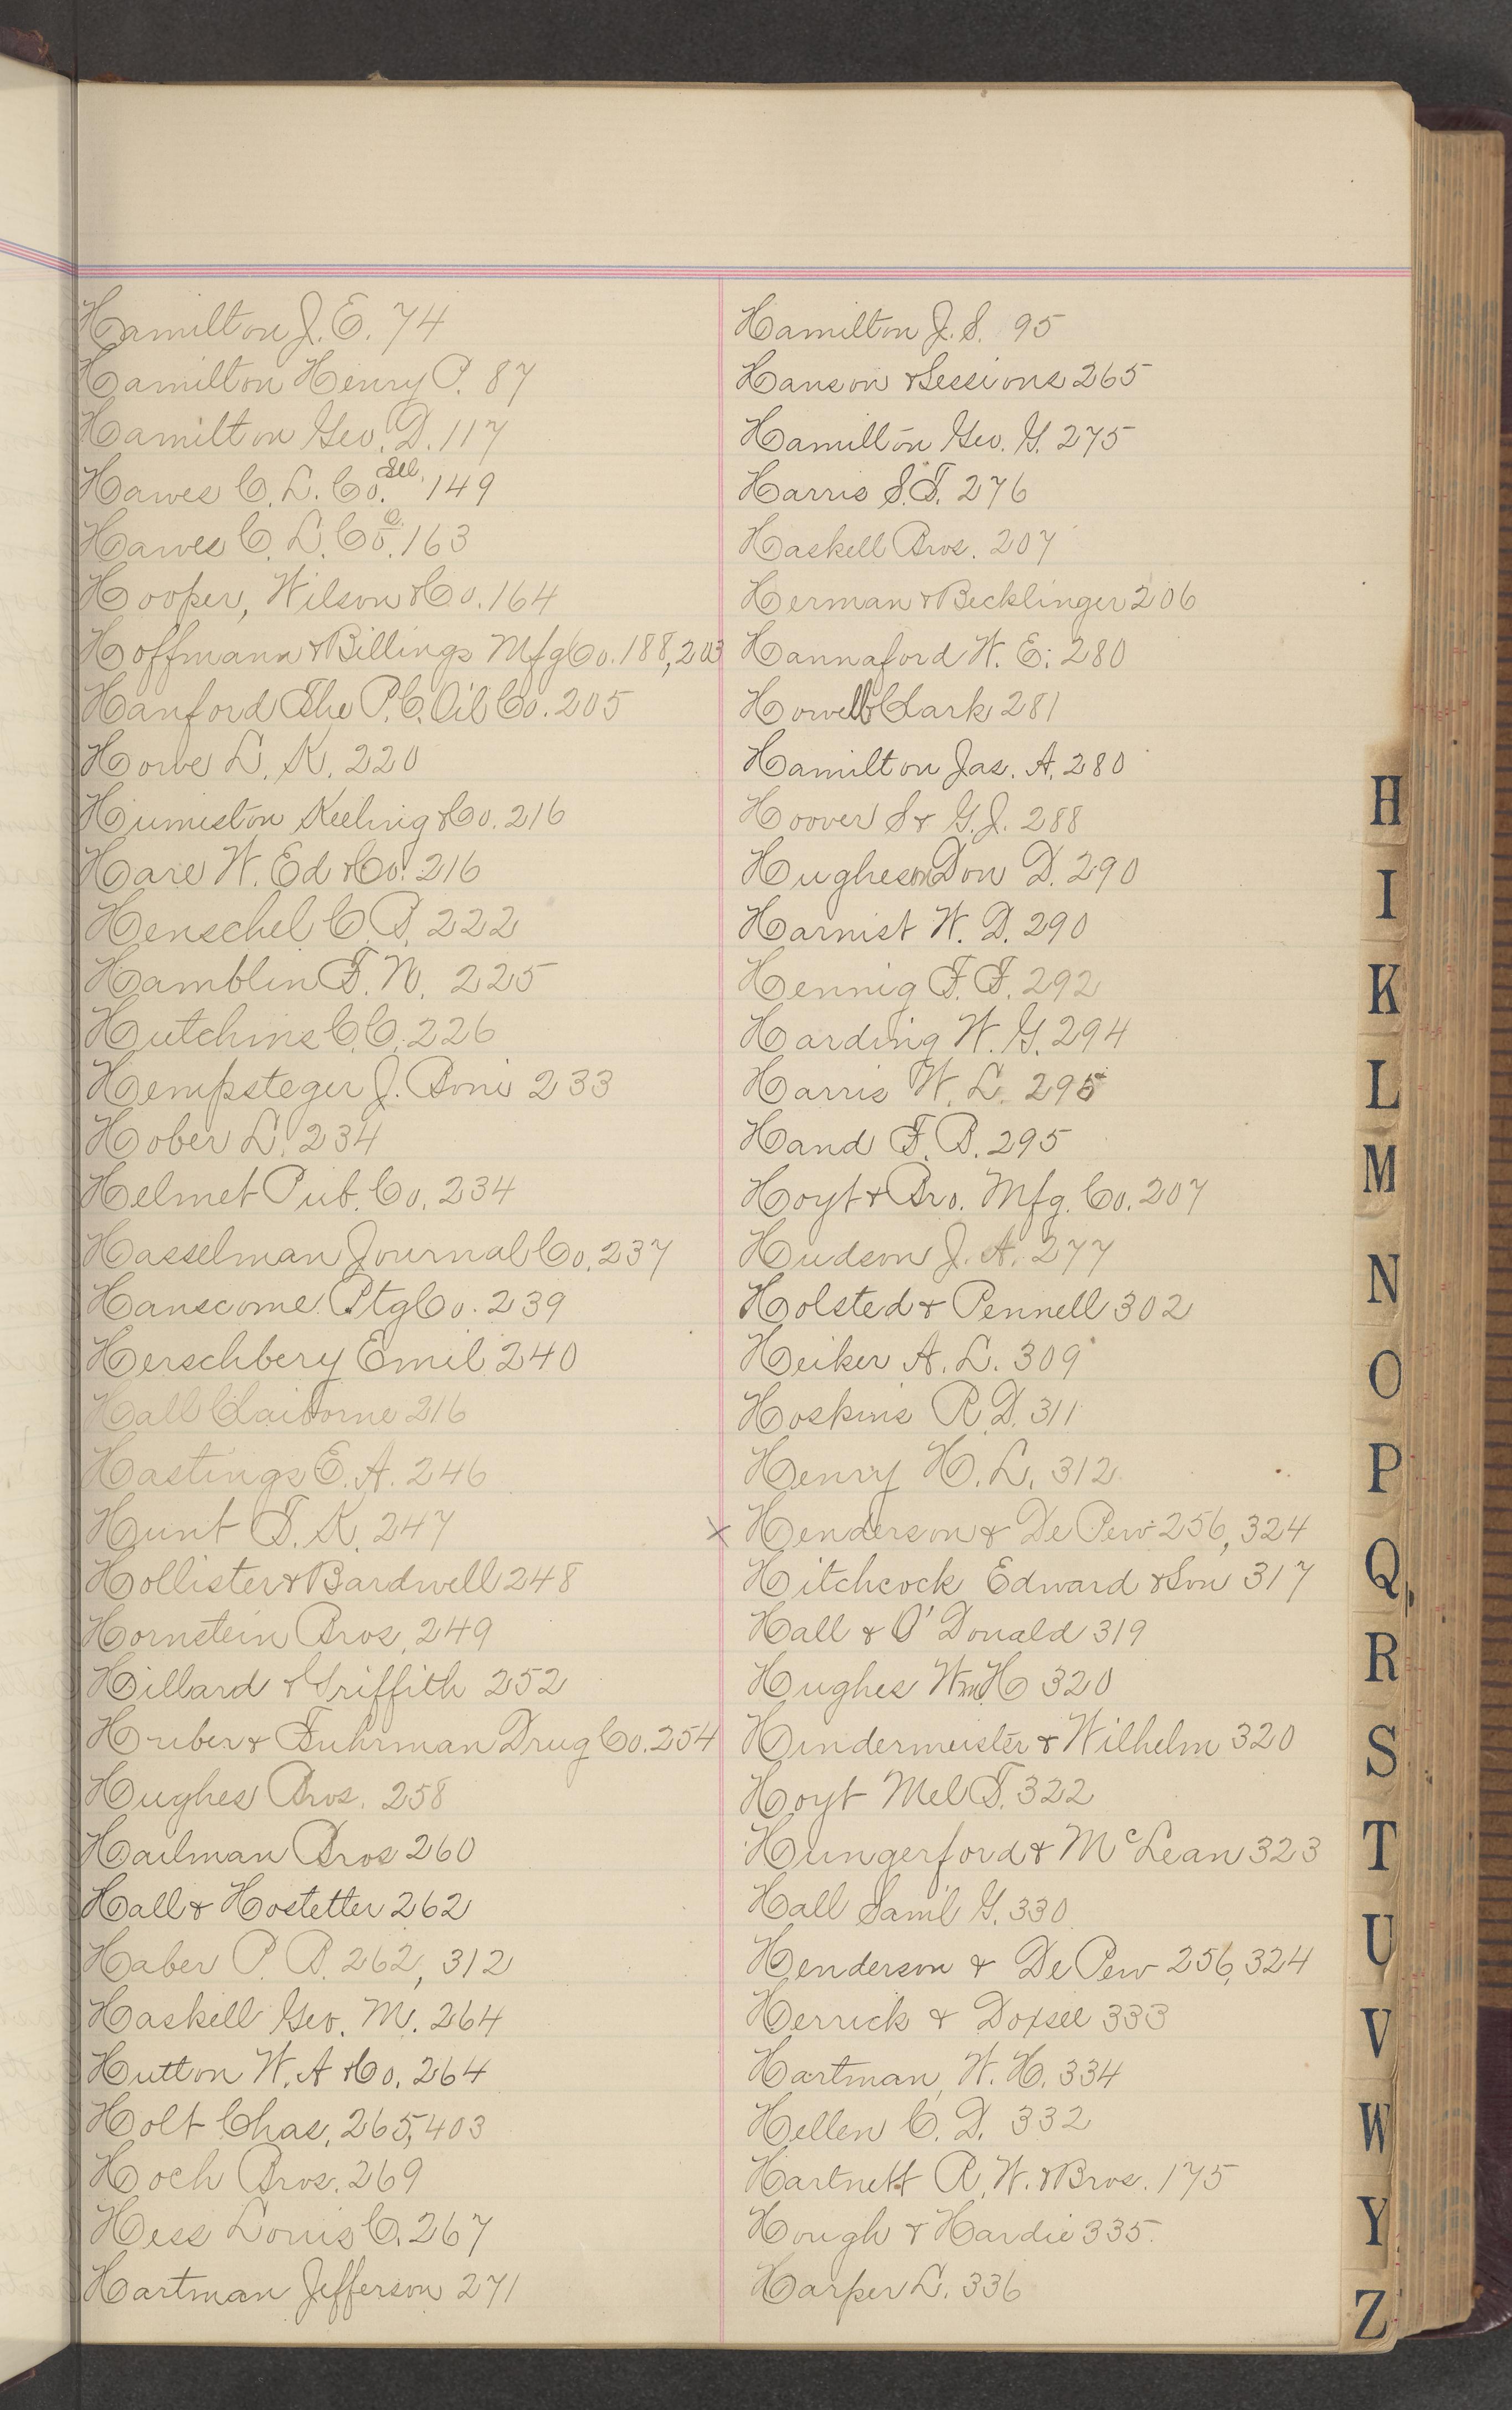 Hamilton J. E. 74
Hamilton Henry P. 87
Hamilton Geo. D. 117
Hawes C. L. Co. Sec. 149
Hawes C. L. Co. 163
Hooper, Wilson & Co. 164
Hoffmann & Billings Mfg Co. 188, 203
Hanford The P. C. Oil Co. 205
Howe L. K. 220
Humiston Keeling & Co. 216
Hare W. Ed & Co. 216
Henschel C. B. 222
Hamblin F. N. 225
Hutchins C. C. 226
Hempsteger J. Boni 233
Hober L. 234
Helmet Pub. Co. 234
Hasselman Journal Co. 237
Hanscome Ptg Co. 239
Herschbery Emil 240
Hall Claiborne 216
Hastings E. A. 246
Hunt T. K. 247
Hollister & Bardwell 248
Hornstein Bros. 249
Hillard & Griffith 252
Huber & Fuhrman Drug Co. 254
Hughes Bros. 258
Hailman Bros 260
Hall & Hostetter 262
Haber P. B. 262, 312
Haskell Geo. M. 264
Hutton W. A & Co. 264
Holt Chas. 265, 403
Hoch Bros. 269
Hess Louis C. 267
Hartman Jefferson 271
Hamilton J. S. 95
Hanson & Sessions 265
Hamilton Geo. G. 275
Harris S. T. 276
Haskell Bros. 207
Herman & Becklinger 206
Hannaford W. E. 280
Howell & Clark 281
Hamilton Jas. A. 280
Hoover S & G. J. 288
Hugheson Don D. 290
Harnist W. D. 290
Hennig F. F. 292
Harding W. G. 294
Harris W. L. 295
Hand F. B. 295
Hoyt & Bro. Mfg. Co. 207
Hudson J. A. 277
Holsted & Pennell 302
Heiker A. L. 309
Hoskins R. D. 311
Henry H. L. 312
x Henderson & De Pew 256, 324
Hitchcock Edward & Son 317
Hall & O'Donald 319
Hughes Wm H 320
Hindermeister & Wilhelm 320
Hoyt Mel T. 322
Hungerford & McLean 323
Hall Saml G. 330
Henderson & De Pew 256, 324
Herrick & Doxsee 333
Hartman, W. H. 334
Hellen C. D. 332
Hartnett R. W. & Bros. 175
Hough & Hardie 335
Harper L. 336
H
I
K
L
M
N
O
P
Q
R
S
T
U
V
W
Y
Z